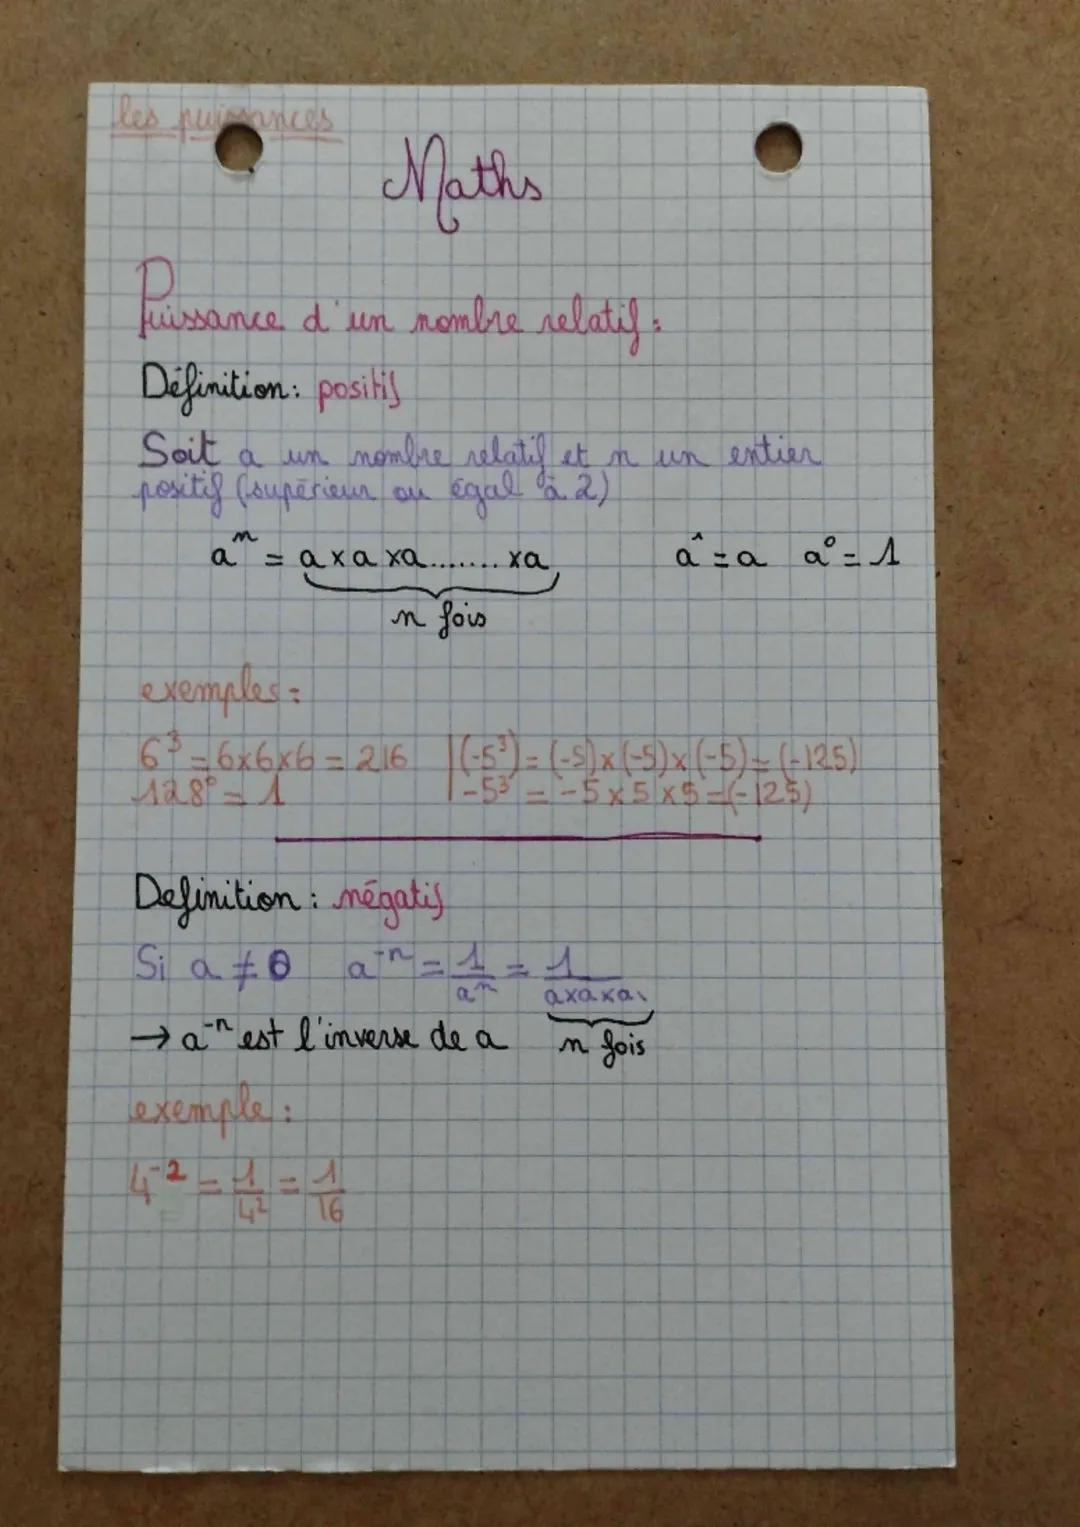 les puissances
Maths
Puissance d'un nombre relatif :
Définition : positif
Soit a un nombre relatif et n un entier
positif (supérieur ou égal à 2)
aⁿ = a x a x a ........ x a a¹ = a a⁰ = 1
n fois
exemples :
6³ = 6x6x6 = 216 |(-5³) = (-5)x(-5)x(-5) = (-125)
128⁰ = 1 |-5³ = -5 x 5 x 5 = (-125)
Definition : négatif
Si a ≠ 0 a⁻ⁿ = 1/aⁿ = 1/axaxa
→ a⁻ⁿ est l'inverse de a n fois
exemple :
4⁻² = 1/4² = 1/16